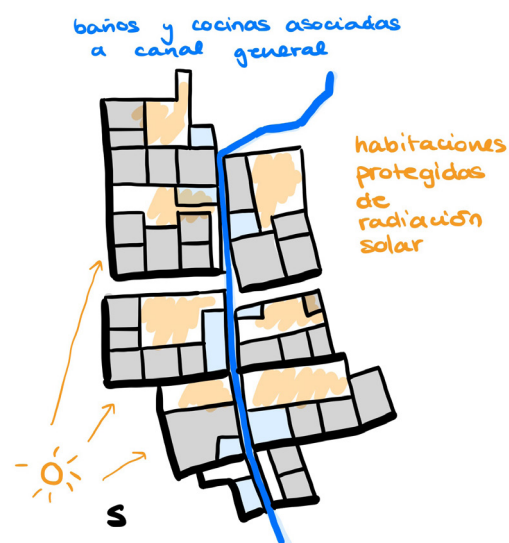 baños y cocinas asociadas
a canal general
habitaciones
protegidas
de
radiación
solar
S